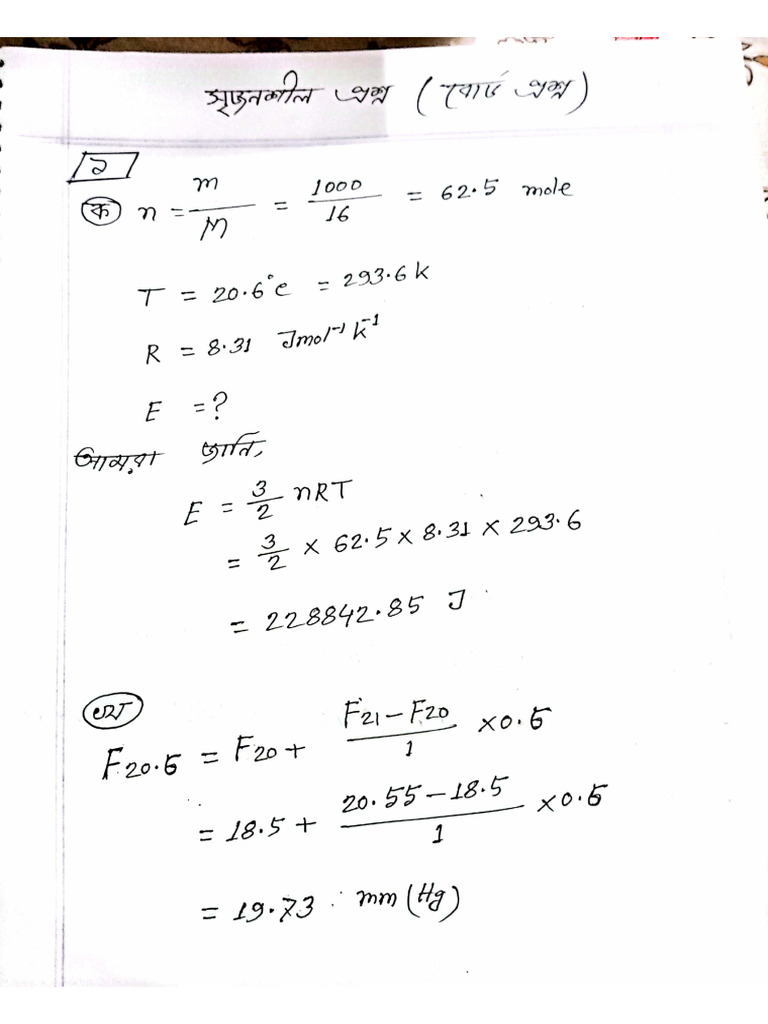 সৃজনশীল প্রশ্ন (বোর্ড প্রশ্ন)
১
ক n = m/M = 1000/16 = 62.5 mole
T = 20.6°c = 293.6 k
R = 8.31 Jmol⁻¹ k⁻¹
E = ?
আমরা জানি,
E = 3/2 nRT
= 3/2 × 62.5 × 8.31 × 293.6
= 228842.85 J
F20.5 = F20 + (F21 - F20)/1 × 0.5
= 18.5 + (20.55 - 18.5)/1 × 0.5
= 19.73 mm (Hg)